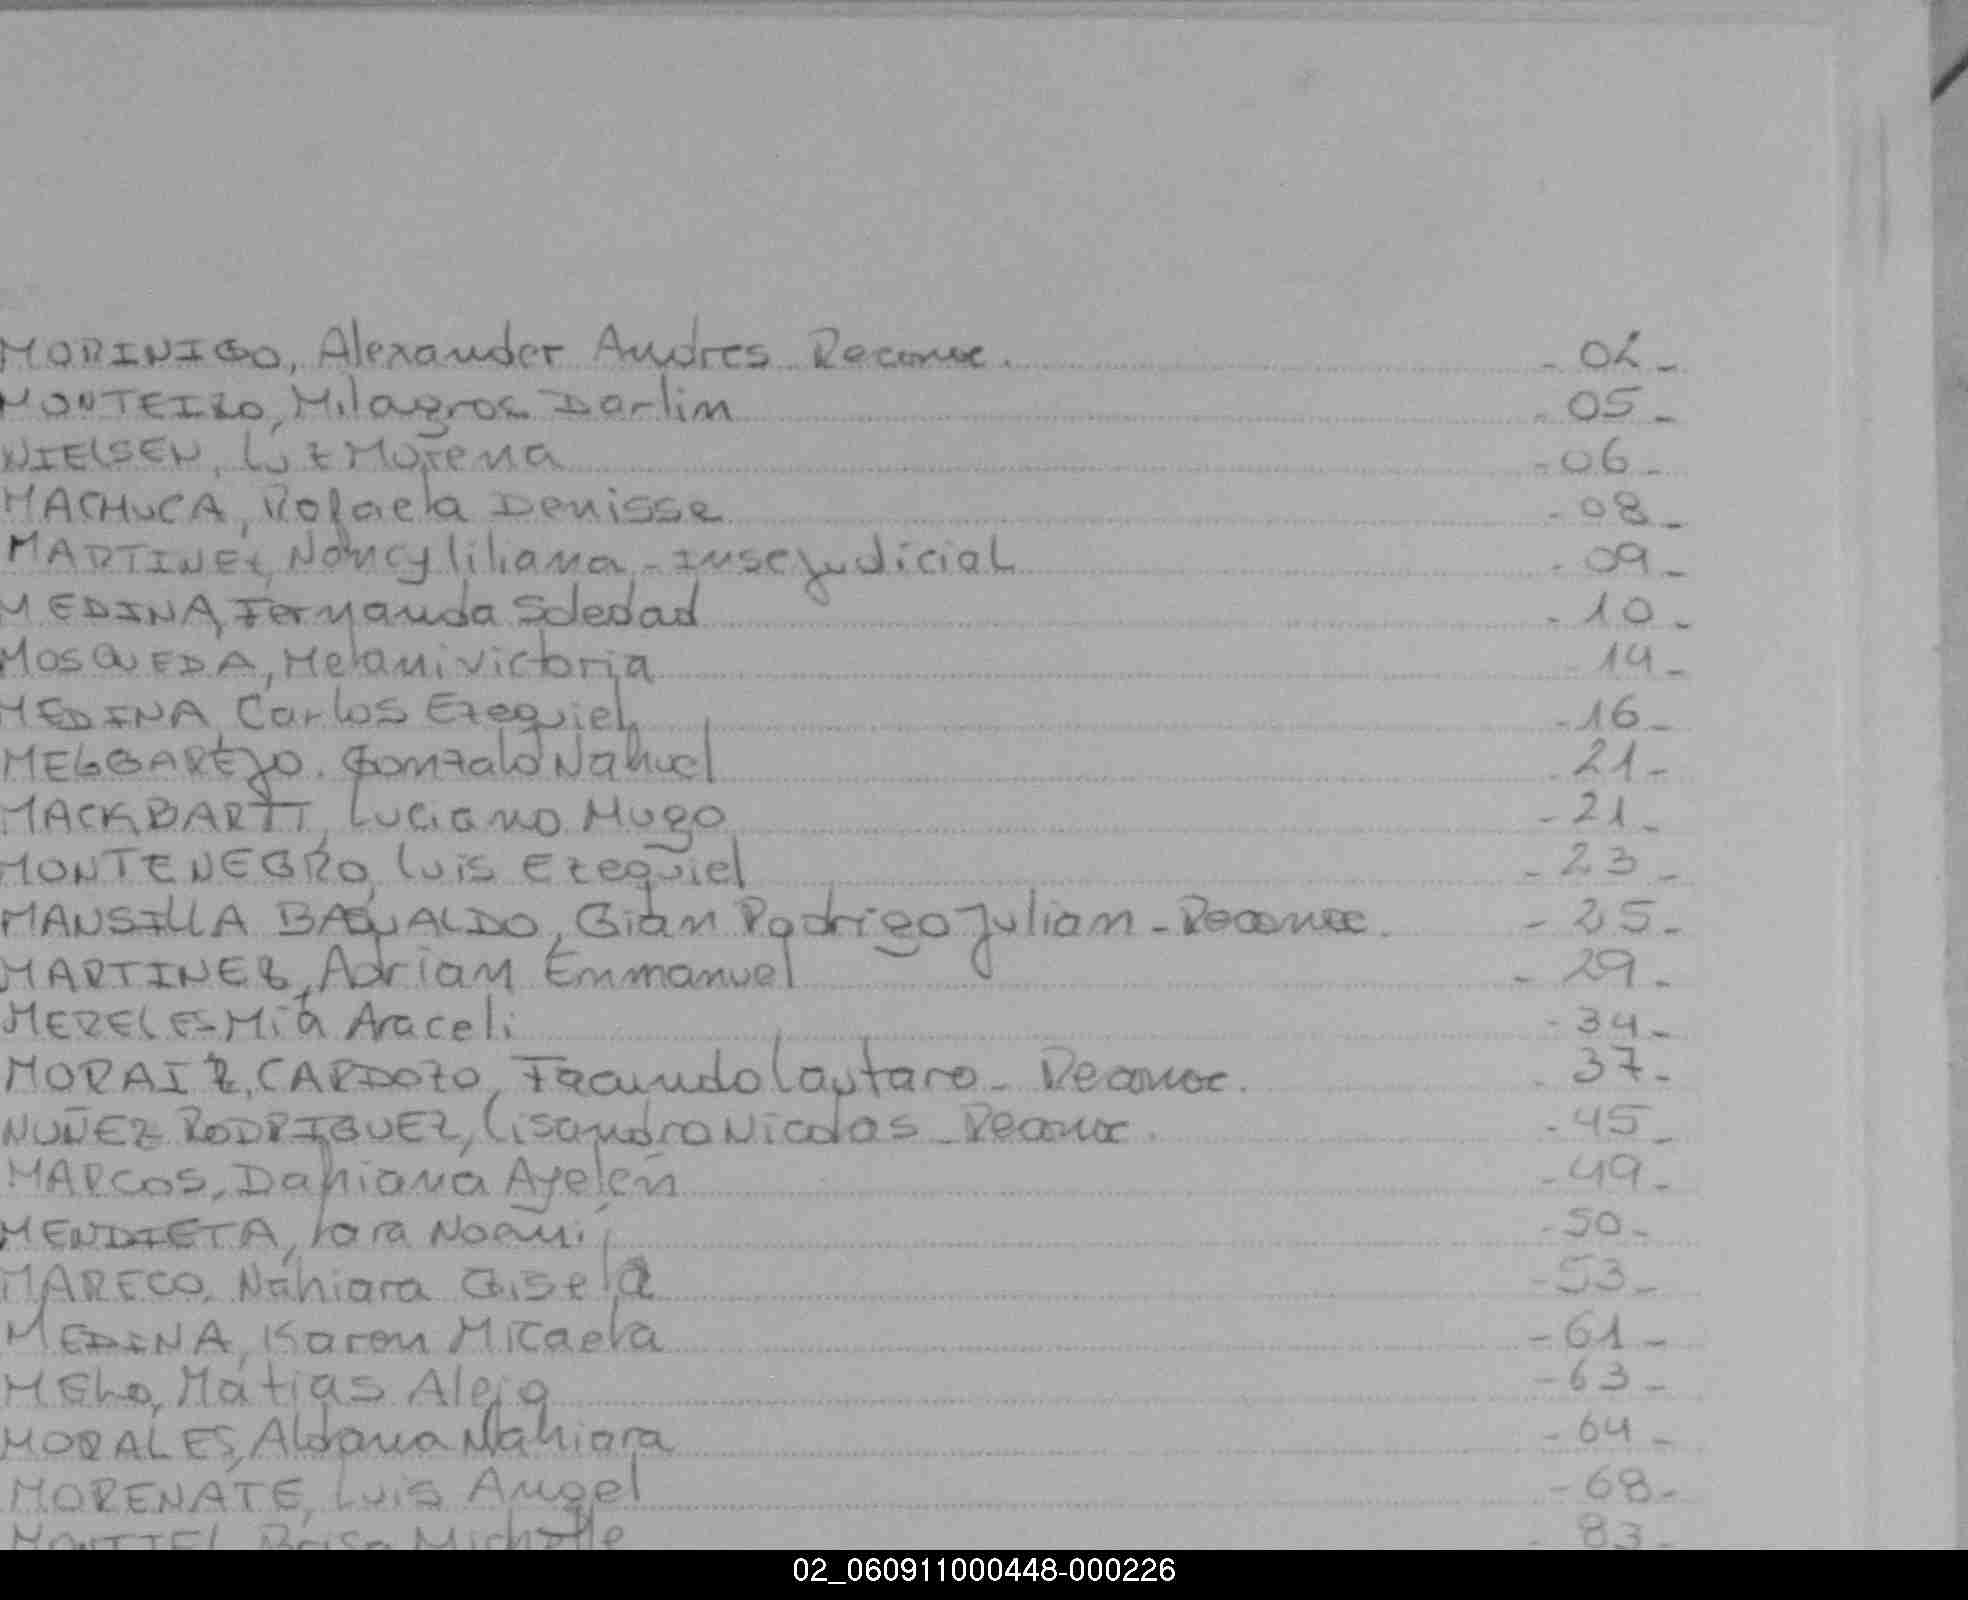 MORINIGO, Alexander Andres Reconoc. - 02 -
MONTEIRO, Milagros Darlin - 05 -
NIELSEN, Luz Morena - 06 -
MACHUCA, Rafaela Denisse - 08 -
MARTINEZ, Nancy liliana - Insc judicial - 09 -
MEDINA, Fernanda Soledad - 10 -
MOSQUEDA, Melani victoria - 14 -
MEDINA, Carlos Ezequiel - 16 -
MELGAREJO, Gonzalo Nahuel - 21 -
MACKBARTT, Luciano Hugo - 21 -
MONTENEGRO, Luis Ezequiel - 23 -
MANSILLA BAGUALDO, Gian Rodrigo Julian - Reconoc. - 25 -
MARTINEZ, Adrian Emmanuel - 29 -
MERELES Mia Araceli - 34 -
MORAIZ, CARDOZO, Facundo Lautaro - Reconoc. - 37 -
NUÑEZ RODRIGUEZ, Lisandro Nicolas - Reconoc. - 45 -
MARCOS, Dahiana Ayelén - 49 -
MENDIETA, Iara Noemi - 50 -
MARECO, Nahiara Gisela - 53 -
MEDINA, Karen Micaela - 61 -
MELLO, Matias Alejo - 63 -
MORALES, Aldana Nahiara - 64 -
MORENATE, Luis Angel - 68 -
MONTIEL, Brisa Michelle - 83 -
02_060911000448-000226